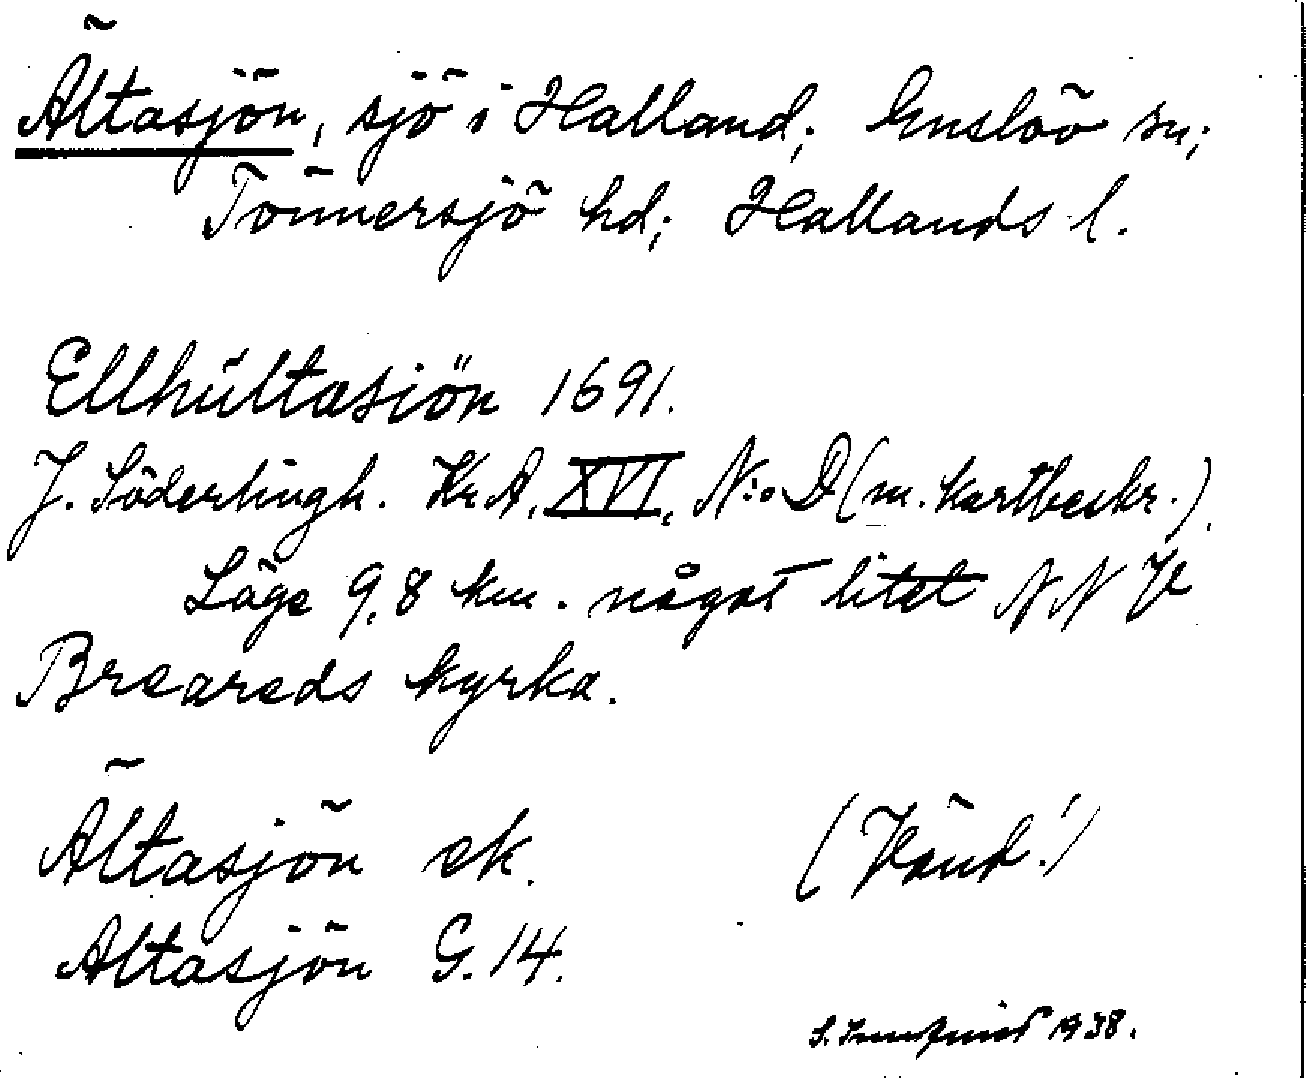 Ältasjön, sjö i Halland; Enslöv sn;
Tönnersjö hd; Hallands l.
Ellhultasiön 1691.
J. Söderlingh. Kr.A. XVI, N:o D (m. kartbeskr.).
Läge 9,8 km. något litet NNV
Breareds kyrka.
Ältasjön ek. (Vänd!)
Altasjön G. 14.
S. 1938.